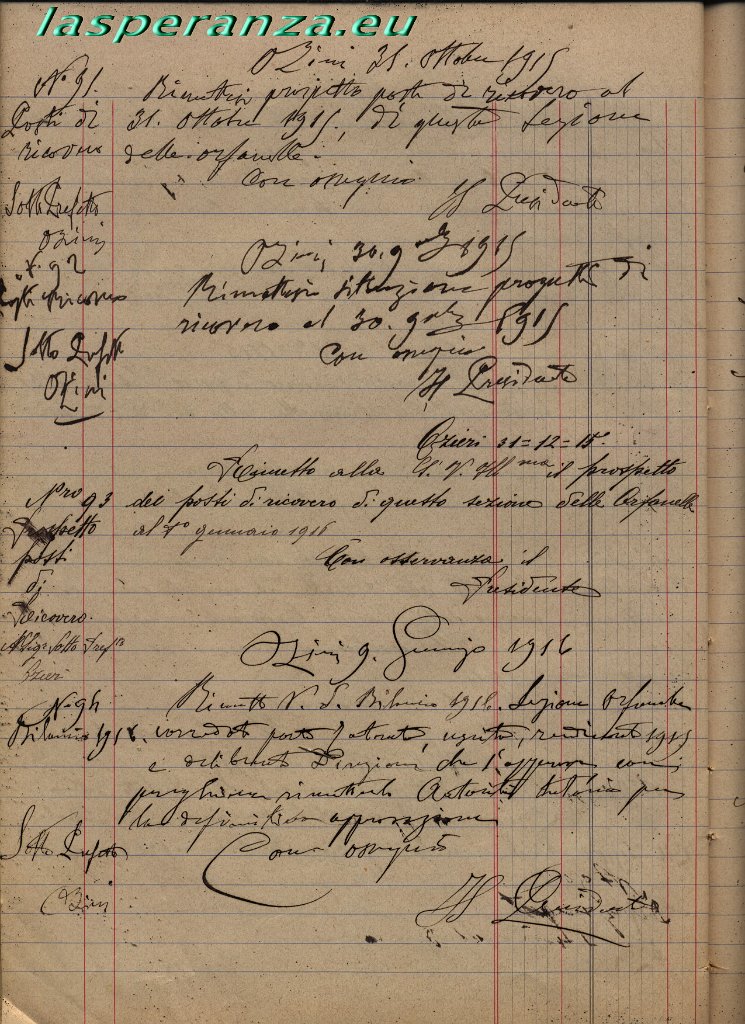 lasperanza.eu
Ozieri 31. Ottobre 1915
N° 91.
Posti di
ricovero
Sotto Prefetto
Ozieri
Rimettesi prospetto posti di ricovero al
31. Ottobre 1915, di questa Sezione
delle orfanelle.
Con ossequio
Il Presidente
Ozieri 30. 9mbre 1915
N. 92
Posti ricovero
Sotto Prefetto
Ozieri
Rimettesi situazione progetto di
ricovero al 30. 9mbre 1915
Con ossequio
Il Presidente
Ozieri 31=12=15.
Nro 93
Prospetto
posti
di
Ricovero.
All Sig. Sotto Prefto
Ozieri
Rimetto alla S. V. Ill ma il prospetto
dei posti di ricovero di questo sezione delle Orfanelle
al 1mo gennaio 1916
Con osservanza il
Presidente
Ozieri 9. Gennaio 1916
N. 94
Bilancio 1916.
Sotto Prefetto
Ozieri
Rimetto V. S. Bilancio 1916. Sezione Orfanelle
corredato
e deliberato Direzione, che
rimetterlo Autorità tutoria per
la definitiva approvazione
Con ossequio
Il Presidente